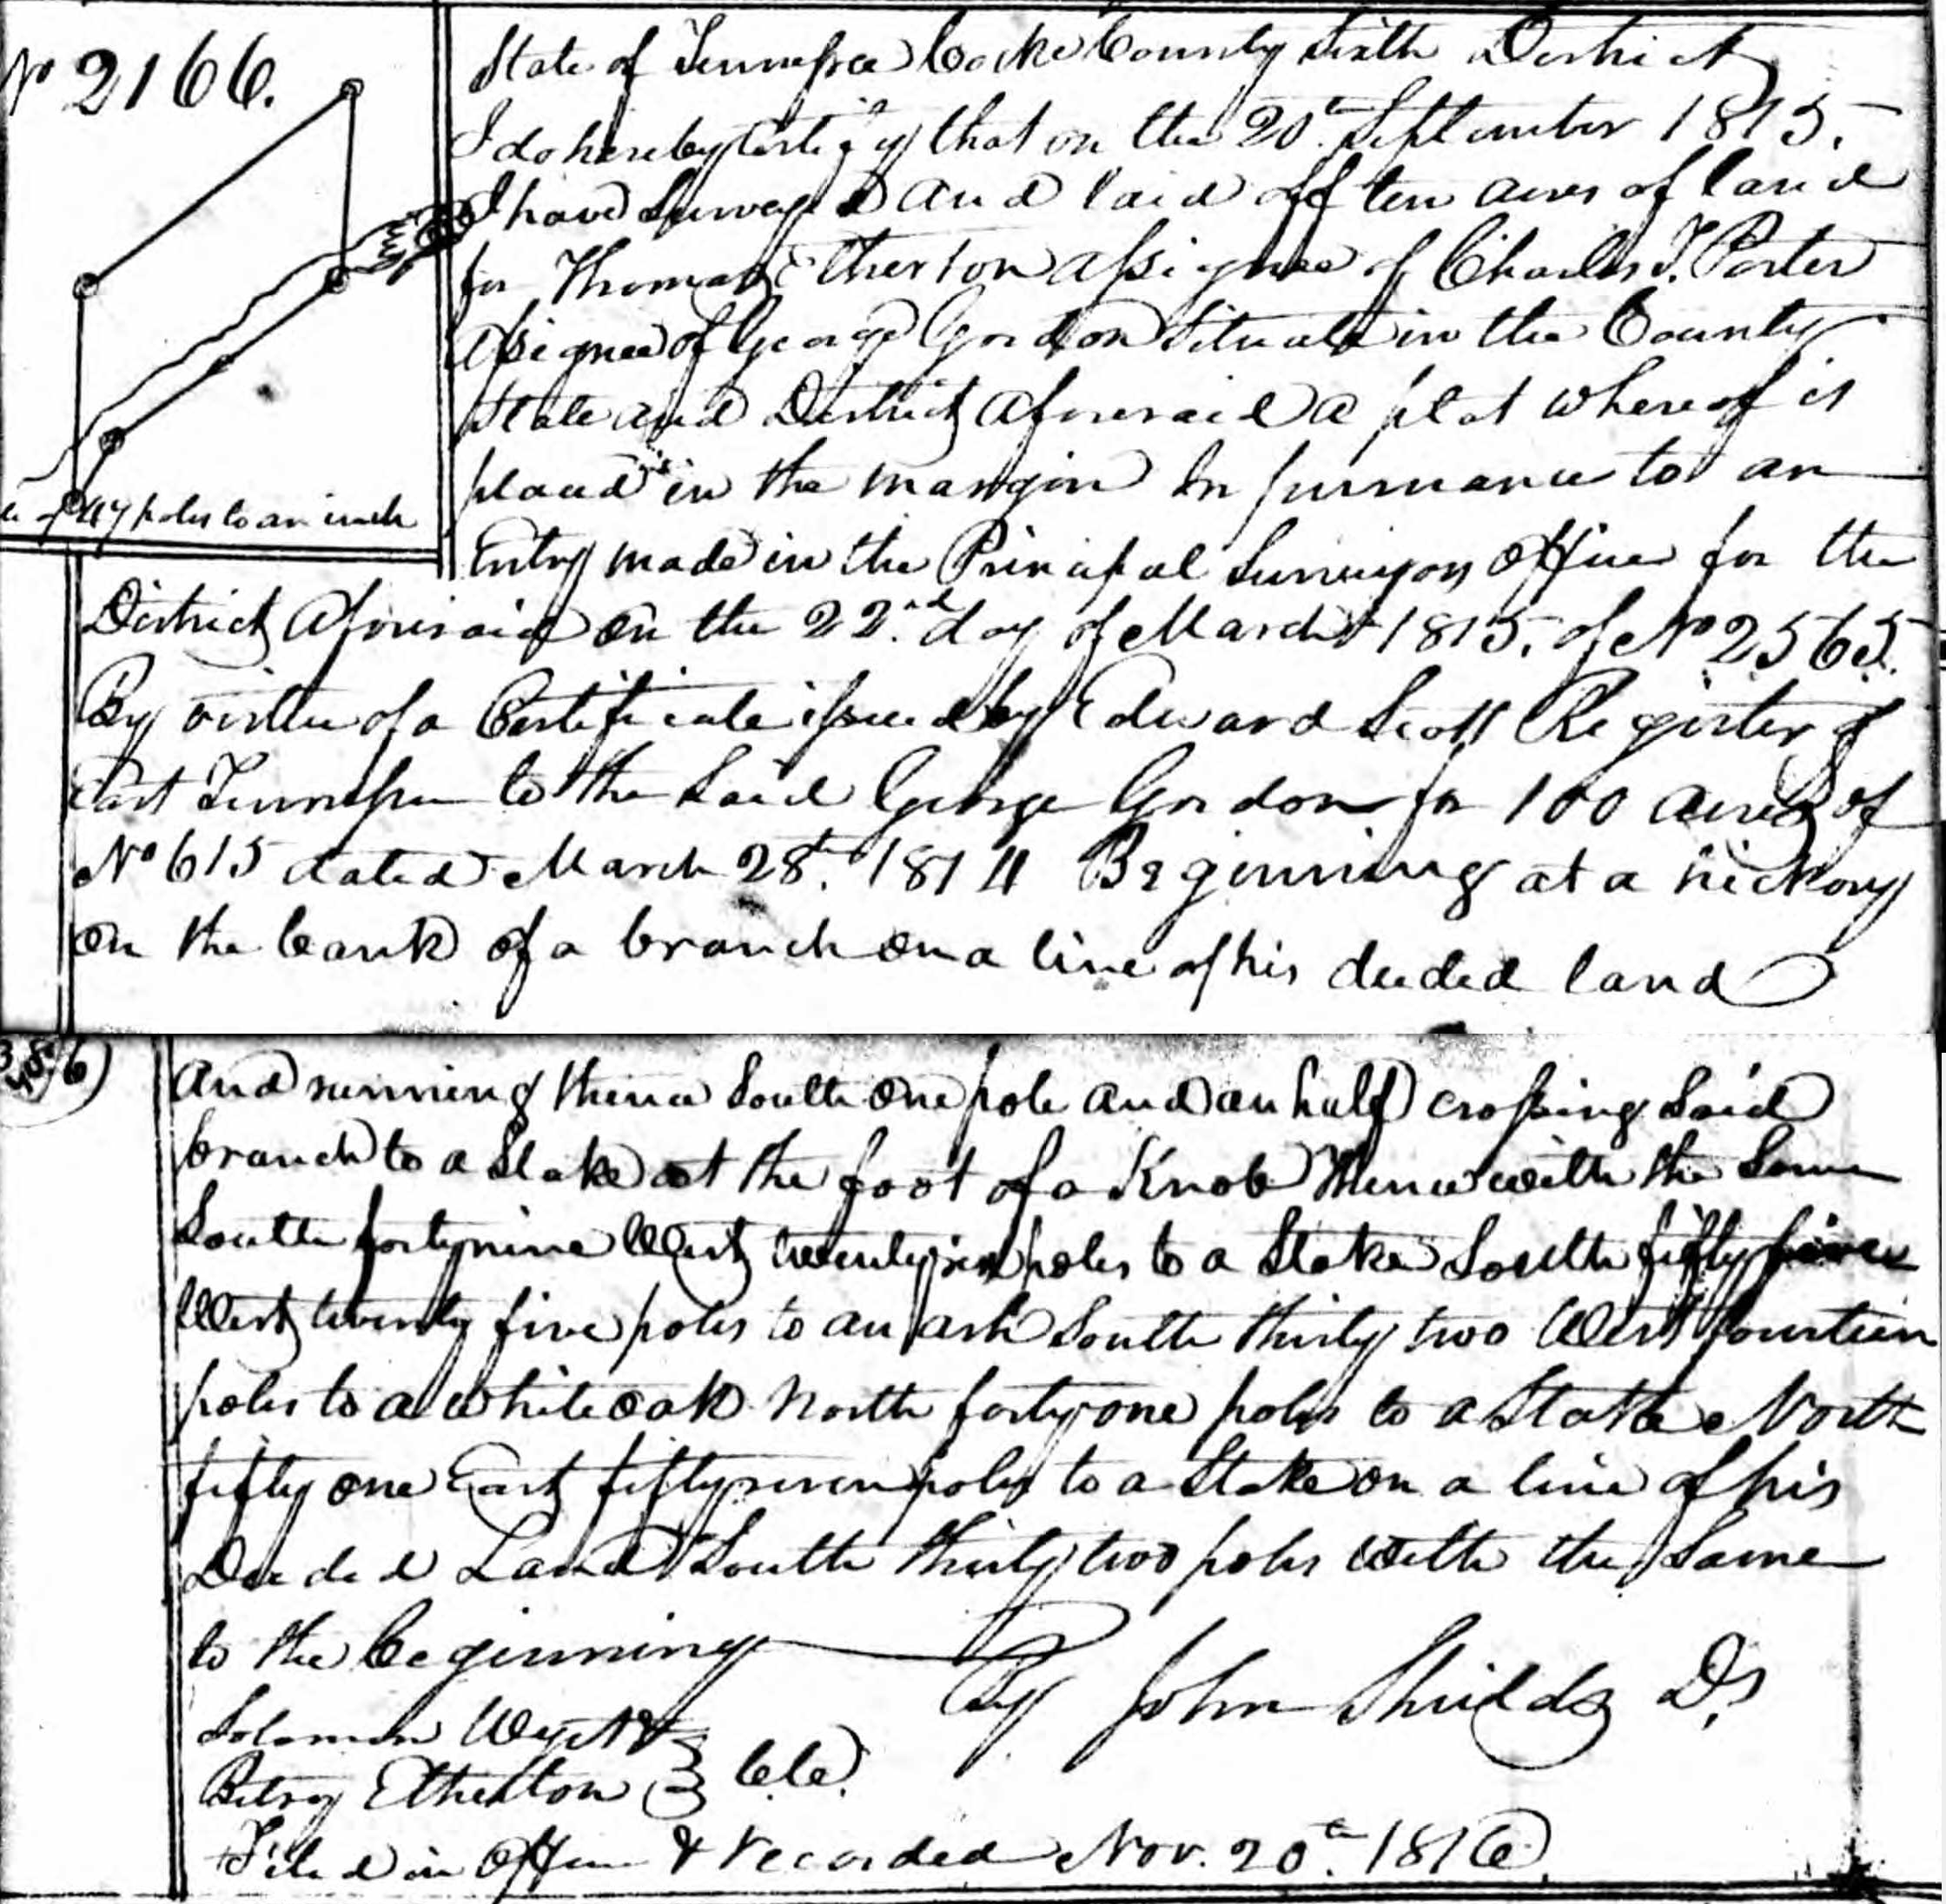 No 2166.
poles to an inch
State of Tennessee Cocke County Sixth District
I do hereby certify that on the 20th September 1815.
I have Surveyed and laid off ten acres of land
for Thomas Etherton assignee of Charles T. Porter
assignee of George Gordon Situate in the County
State and District aforesaid a plat whereof is
placed in the margin In pursuance to an
Entry made in the Principal Surveyors Office for the
District aforesaid on the 22nd day of March 1815. of No 2565.
By virtue of a Certificate issued by Edward Scott Register of
East Tennessee to the said George Gordon for 100 acres of
No 615 dated March 28th 1814 Beginning at a hickory
on the bank of a branch on a line of his deeded land
and running thence South one pole and an half crossing said
branch to a Stake at the foot of a Knob Thence with the Same
South forty nine West twenty six poles to a Stake South fifty five
West twenty five poles to an ash South thirty two West fourteen
poles to a white oak North forty one poles to a Stake North
fifty one East fifty seven poles to a Stake on a line of his
Deeded Land South thirty two poles with the Same
to the beginning
By John Shields D.S
Solomon
Etherton } C.C.
Filed in Office & recorded Nov. 20th 1816